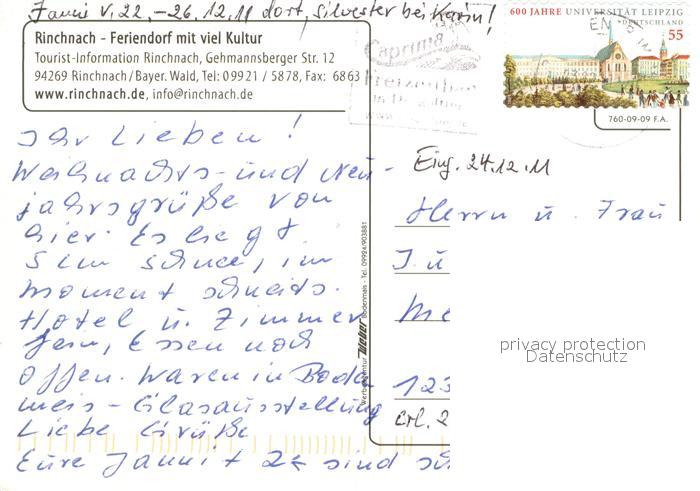 Janni v. 22. - 26.12.11 dort, Silvester bei Karin!
Rinchnach - Feriendorf mit viel Kultur
Tourist-Information Rinchnach, Gehmannsberger Str. 12
94269 Rinchnach / Bayer. Wald, Tel: 0 99 21 / 5878, Fax: 6863
www.rinchnach.de, info@rinchnach.de
600 JAHRE UNIVERSITÄT LEIPZIG
DEUTSCHLAND
55
760-09-09 F.A.
Ihr Lieben!
Weihnachts- und Neu-
jahrsgrüße von
hier. Es liegt
5 cm Schnee, im
Moment schneits.
Hotel u. Zimmer
fein, Essen noch
offen. Waren in Boden
mais - Glasausstellung
Liebe Grüße
Eure Janni + sind
Werbeagentur Weber Bodenmais - Tel. 09924/903881
Eing. 24.12.11
Herrn u. Frau
J. u
Me
123
erl. 2
privacy protection
Datenschutz